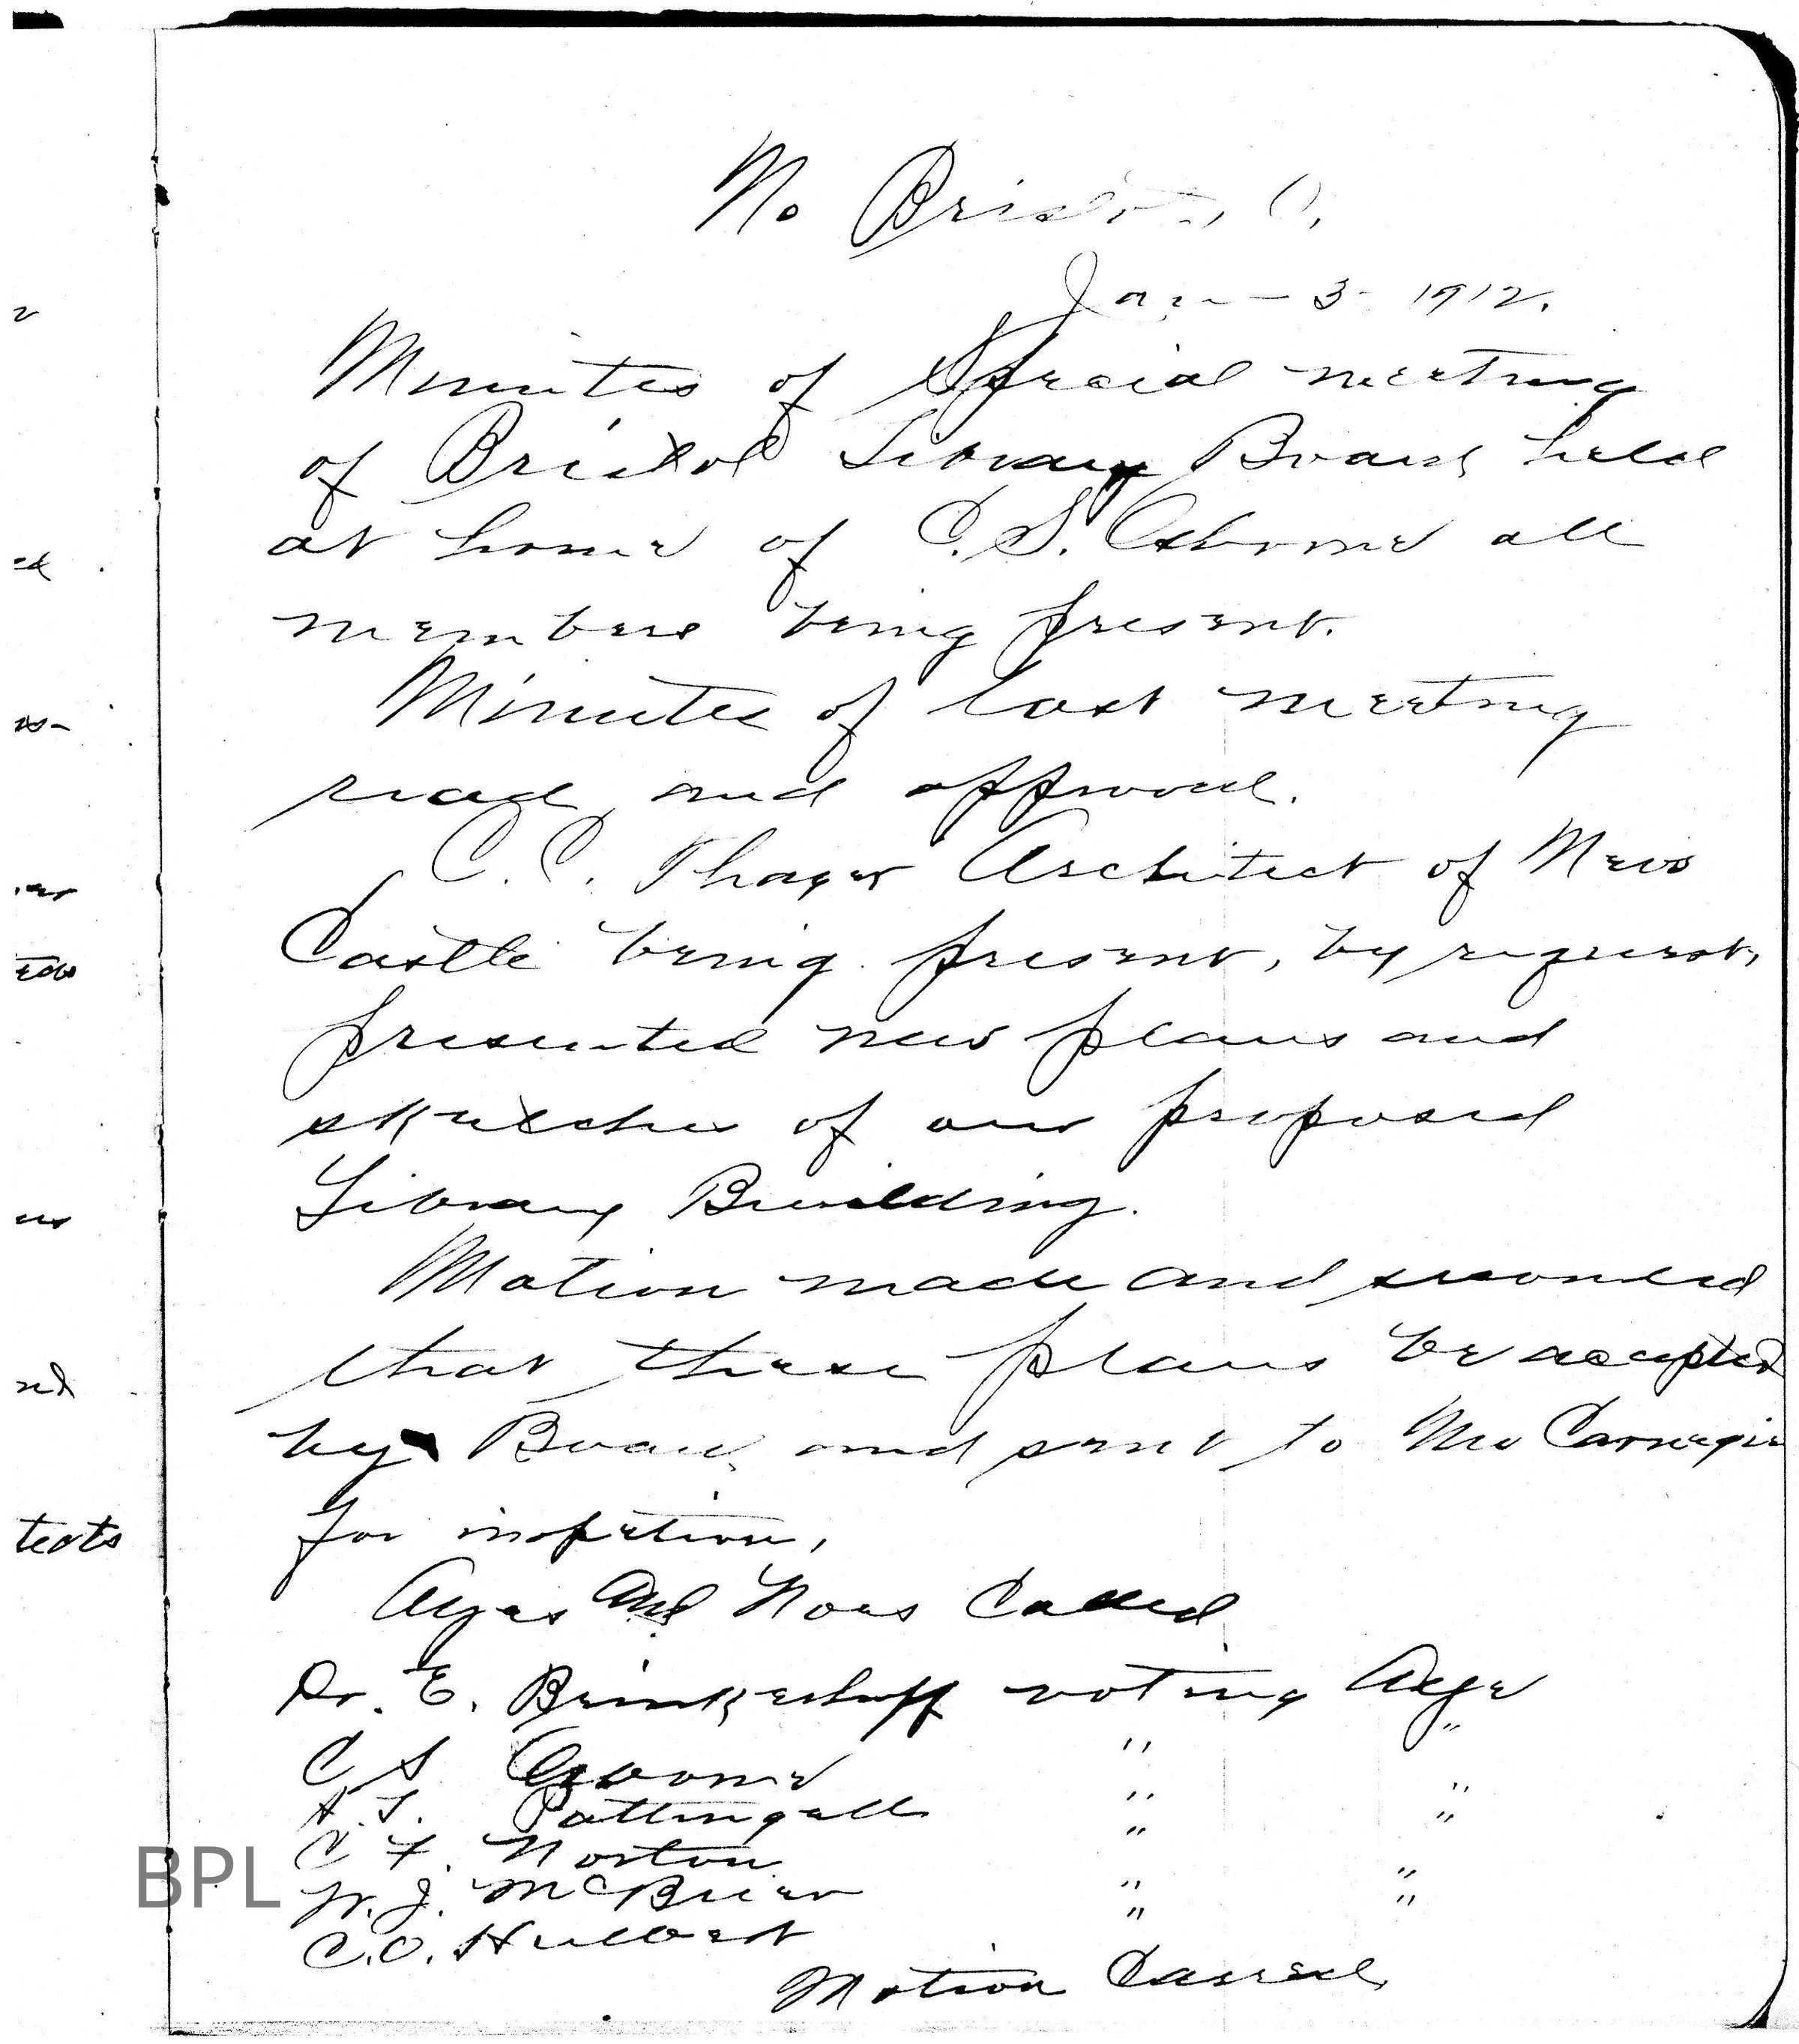 No Bristol, O.
Jan - 3 - 1912.
Minutes of Special meeting
of Bristol Library Board held
at home of C. S. Osborne all
members being present.
Minutes of last meeting
read and approved.
C. C. Thayer Architect of New
Castle being present, by request,
presented new plans and
sketches of our proposed
Library Building.
Motion made and seconded
that these plans be accepted
by Board and sent to Mr Carnegie
for inspection,
Ayes and Noes Called
Dr. E. Brinkerhoff voting Aye
C S Osborne " "
A. T. Pattingall " "
C F. Norton " "
W. J. McBrier " "
C. O. Hulbert " "
Motion Carried
tects
BPL